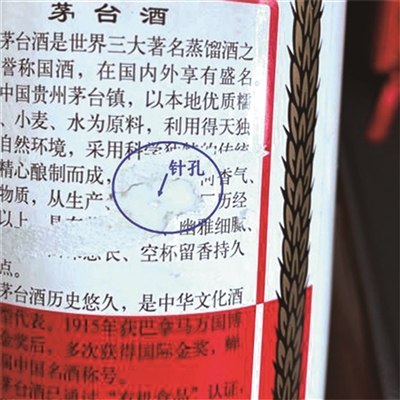 茅台酒
茅台酒是世界三大著名蒸馏酒之
誉称国酒，在国内外享有盛名
中国贵州茅台镇，以本地优质糯
、小麦、水为原料，利用得天独
自然环境，采用科学独特的传统
精心酿制而成，
香气、
针孔
物质，从生产、
历经
以上，具有
幽雅细腻、
悠长、空杯留香持久
点。
茅台酒历史悠久，是中华文化酒
代表。1915年获巴拿马万国博
金奖后，多次获得国际金奖，蝉
届中国名酒称号。
茅台酒已通过“有机食品”认证，